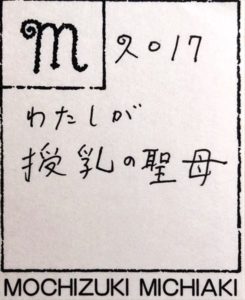 m 2017
わたしが
授乳の聖母
MOCHIZUKI MICHIAKI